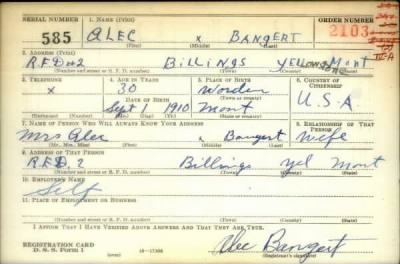 SERIAL NUMBER 1. NAME (Print) ORDER NUMBER
585 ALEC x BANGERT 2103
(First) (Middle) (Last)
2. ADDRESS (Print)
R.F.D #2 BILLINGS YELLOWSTONE MONT
(Number and street or R. F. D. number) (Town) (County) (State)
3. TELEPHONE 4. AGE IN YEARS 5. PLACE OF BIRTH 6. COUNTRY OF CITIZENSHIP
x 30 Worden
DATE OF BIRTH (Town or county)
Sept 1 1910 Mont U.S.A
(Exchange) (Number) (Mo.) (Day) (Yr.) (State or country)
7. NAME OF PERSON WHO WILL ALWAYS KNOW YOUR ADDRESS 8. RELATIONSHIP OF THAT PERSON
Mrs Alec x Bangert Wife
(Mr., Mrs., Miss) (First) (Middle) (Last)
9. ADDRESS OF THAT PERSON
R.F.D. 2 Billings Yel Mont
(Number and street or R. F. D. number) (Town) (County) (State)
10. EMPLOYER'S NAME
Self
11. PLACE OF EMPLOYMENT OR BUSINESS
(Number and street or R. F. D. number) (Town) (County) (State)
I AFFIRM THAT I HAVE VERIFIED ABOVE ANSWERS AND THAT THEY ARE TRUE.
REGISTRATION CARD
D. S. S. Form 1 16—17105 Alec Bangert
(Registrant's signature)